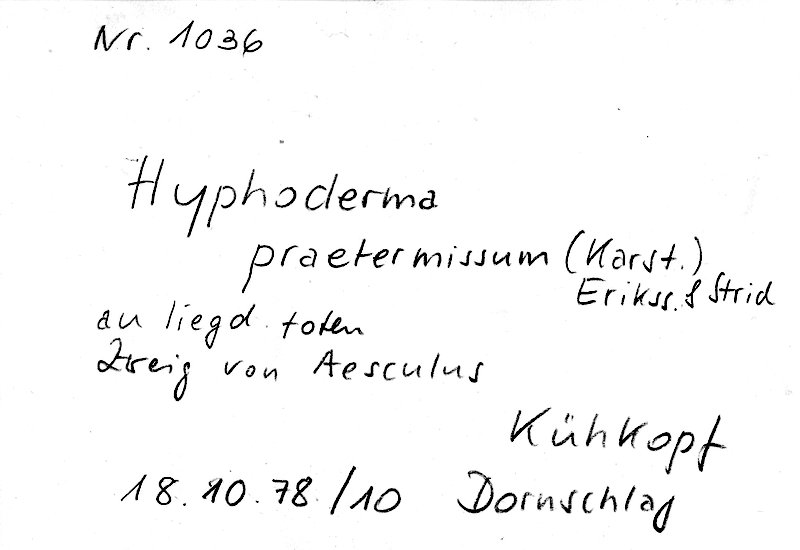 Nr. 1036
Hyphoderma
praetermissum (Karst.)
Erikss. & Strid
an liegd. toten
Zweig von Aesculus
Kühkopf
18.10.78/10 Dornschlag